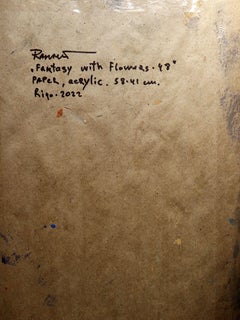 „Fantasy with Flowers. 48"
PAPER, acrylic. 58.41 cm.
Riga. 2022